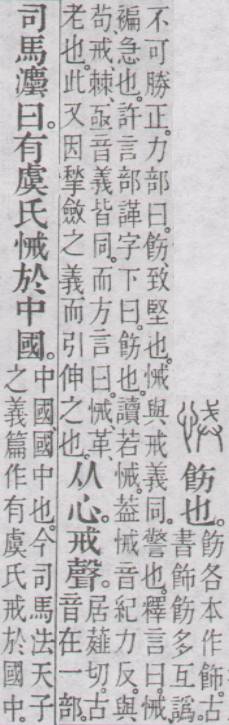 飭也。
飭各本作飾。古
書飾飭多互譌
不可勝正。力部曰。飭、致堅也。悈與戒義同。警也。釋言曰。悈、
褊急也。許言部諽字下曰。飭也。讀若悈。葢悈音紀力反。與
苟、戒、棘、亟音義皆同。而方言曰。悈、革、
老也。此又因揫斂之義而引伸之也。
从心。戒聲。
居薤切。古
音在一部。
司馬灋曰。有虞氏悈於中國。
中國、國中也。今司馬法天子
之義篇作有虞氏戒於國中。